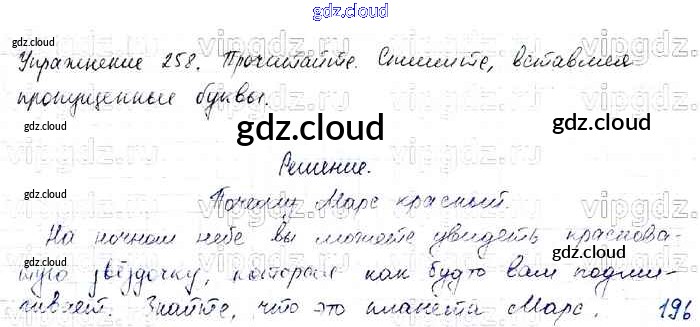 gdz.cloud
gdz.cloud gdz.cloud gdz.cloud
Упражнение 258. Прочитайте. Спишите, вставляя
пропущенные буквы.
gdz.cloud gdz.cloud gdz.cloud
Решение.
gdz.cloud gdz.cloud
Почему Марс красный.
На ночном небе вы можете увидеть краснова-
тую звёздочку, которая как будто вам подми-
гивает. Знайте, что это планета Марс.
gdz.cloud gdz.cloud gdz.cloud
196